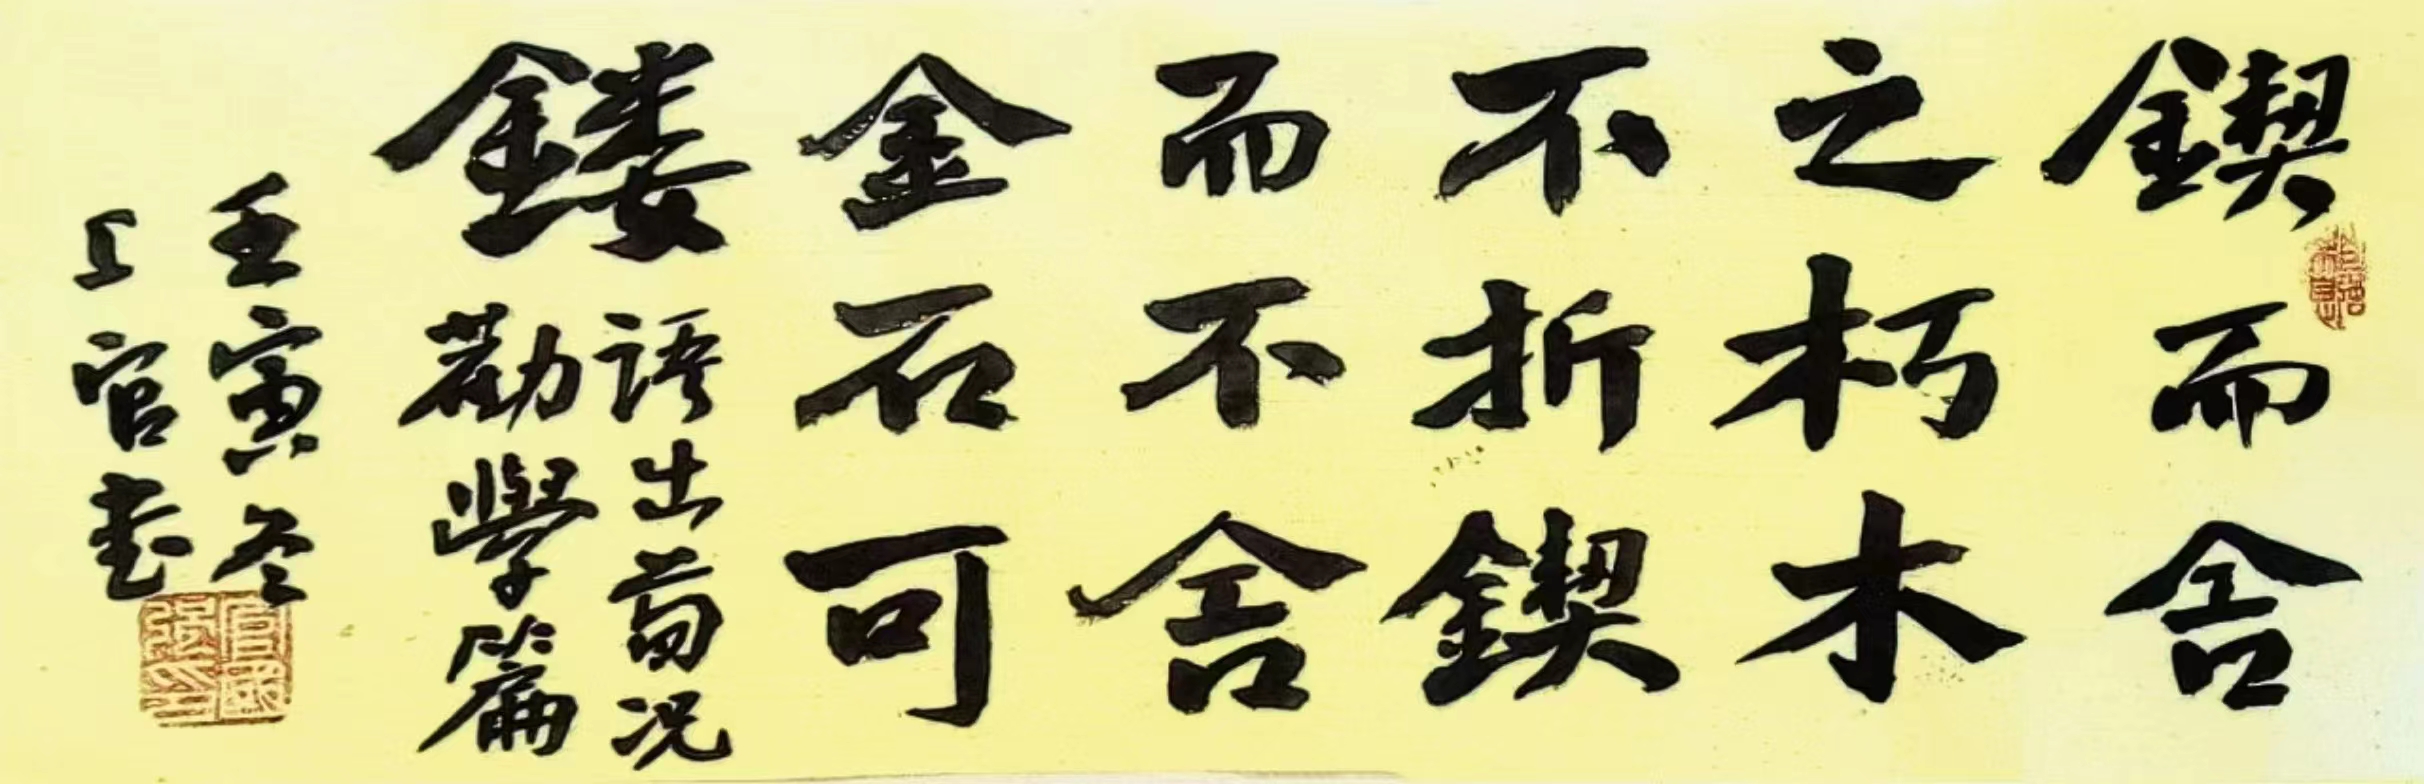 鍥而舍
之朽木
不折鍥
而不舍
金石可
鏤
語出荀況
勸學篇
壬寅冬
上官書